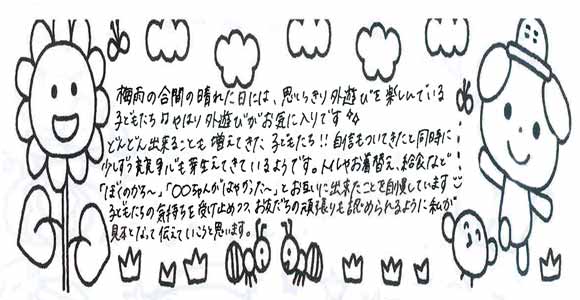 梅雨の合間の晴れた日には、思いっきり外遊びを楽しんでいる
子どもたち♫やはり外遊びがお気に入りです♪♪
どんどん出来ることも増えてきた子どもたち!!自信もついてきたと同時に
少しずつ競争心も芽生えてきているようです。トイレやお着替え、給食など
「ぼくのかち〜」「〇〇ちゃんがはやかった〜」とお互いに出来たことを自慢しています
子どもたちの気持ちを受け止めつつ、お友だちの頑張りも認められるように私が
見本となって伝えていこうと思います。